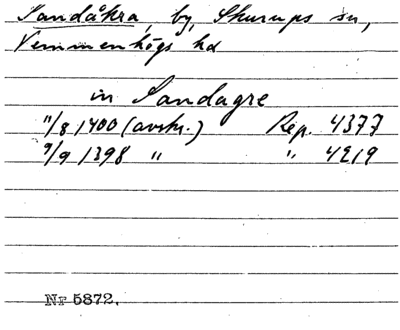 Sandåkra, by, Skurups sn,
Vemmenhögs hd
in Sandagre
11/8 1400 (avskr.) Rep. 4377
9/9 1398 " " 4219
Nr 5872.